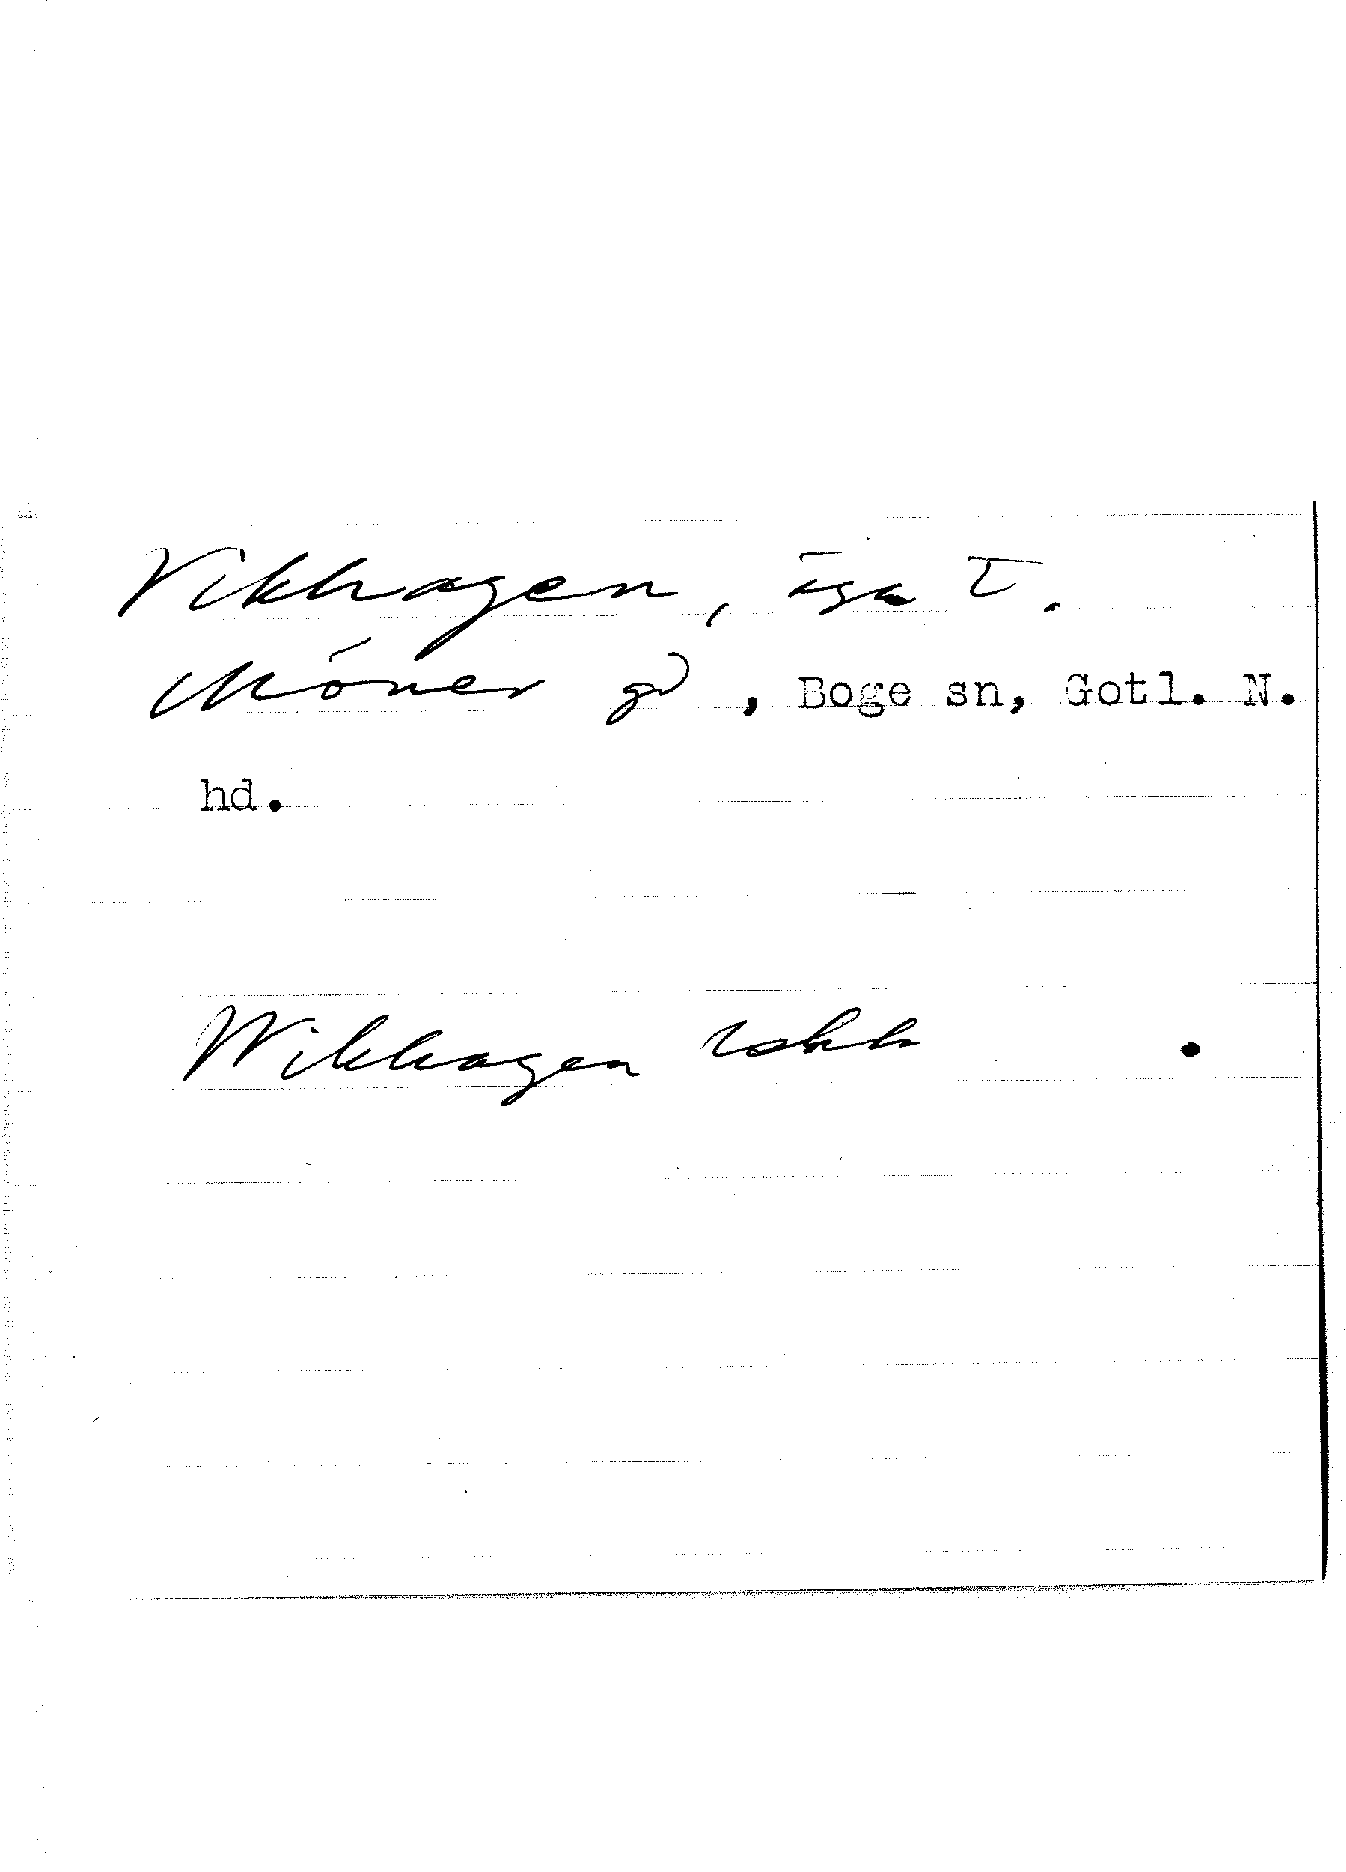 Vikhagen, äga t.
Möner gd, Boge sn, Gotl. N.
hd.
Wikhagen